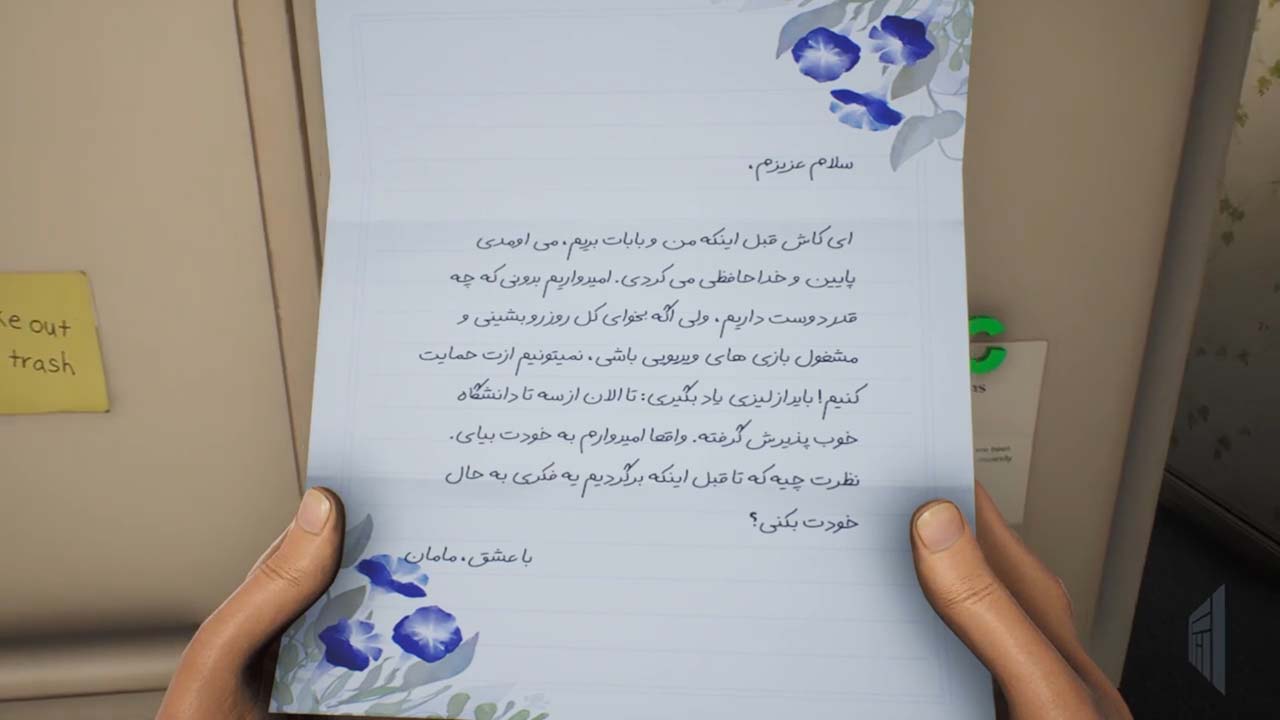 سلام عزیزم،
ای کاش قبل اینکه من و بابات بریم، می اومدی
پایین و خداحافظی می کردی. امیدواریم بدونی که چه
قدر دوست داریم، ولی اگه بخوای کل روز رو بشینی و
مشغول بازی های ویدیویی باشی، نمیتونیم ازت حمایت
کنیم! باید از لیزی یاد بگیری: تا الان از سه تا دانشگاه
خوب پذیرش گرفته. واقعا امیدوارم به خودت بیای.
نظرت چیه که تا قبل اینکه برگردیم یه فکری به حال
خودت بکنی؟
با عشق، مامان
ke out
trash